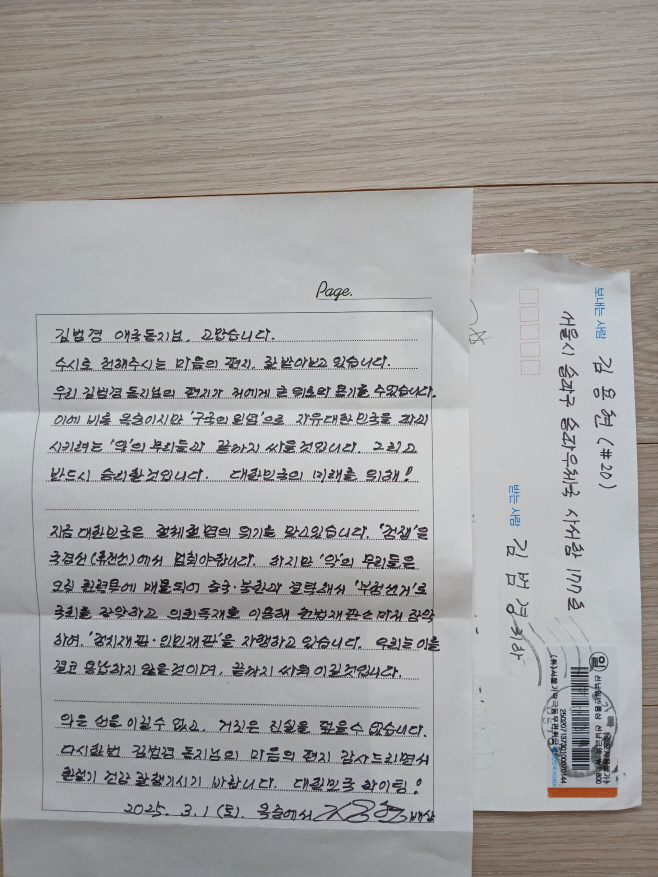 Page.
김범경 애국동지님, 고맙습니다.
수시로 전해주시는 마음의 편지, 잘 받아보고 있습니다.
우리 김범경 동지님의 편지가 저에게 큰 위로와 용기를 주었습니다.
이에 비록 옥중이지만 '구국의 일념'으로 자유대한민국을 파괴
시키려는 '악'의 무리들과 끝까지 싸울것입니다. 그리고
반드시 승리할것입니다. 대한민국의 미래를 위해!
지금 대한민국은 절체절명의 위기를 맞고있습니다. '정쟁'은
국경선(휴전선)에서 멈춰야합니다. 하지만 '악'의 무리들은
오직 권력욕에 매몰되어 중국·북한과 결탁해서 '부정선거'로
국회를 장악하고 의회독재를 이용해 헌법재판소마저 장악
하며, '정치재판·인민재판'을 자행하고 있습니다. 우리는 이를
결코 용납하지 않을것이며, 끝까지 싸워 이길것입니다.
악은 선을 이길수 없고, 거짓은 진실을 덮을수 없습니다.
다시한번 김범경 동지님의 마음의 편지 감사드리면서
환절기 건강 잘 챙기시기 바랍니다. 대한민국 화이팅!
2025. 3. 1 (토). 옥중에서 김용현 배상
보내는 사람 김용현 (#20)
서울시 송파구 송파우체국 사서함 177호
받는 사람 김범경 귀하